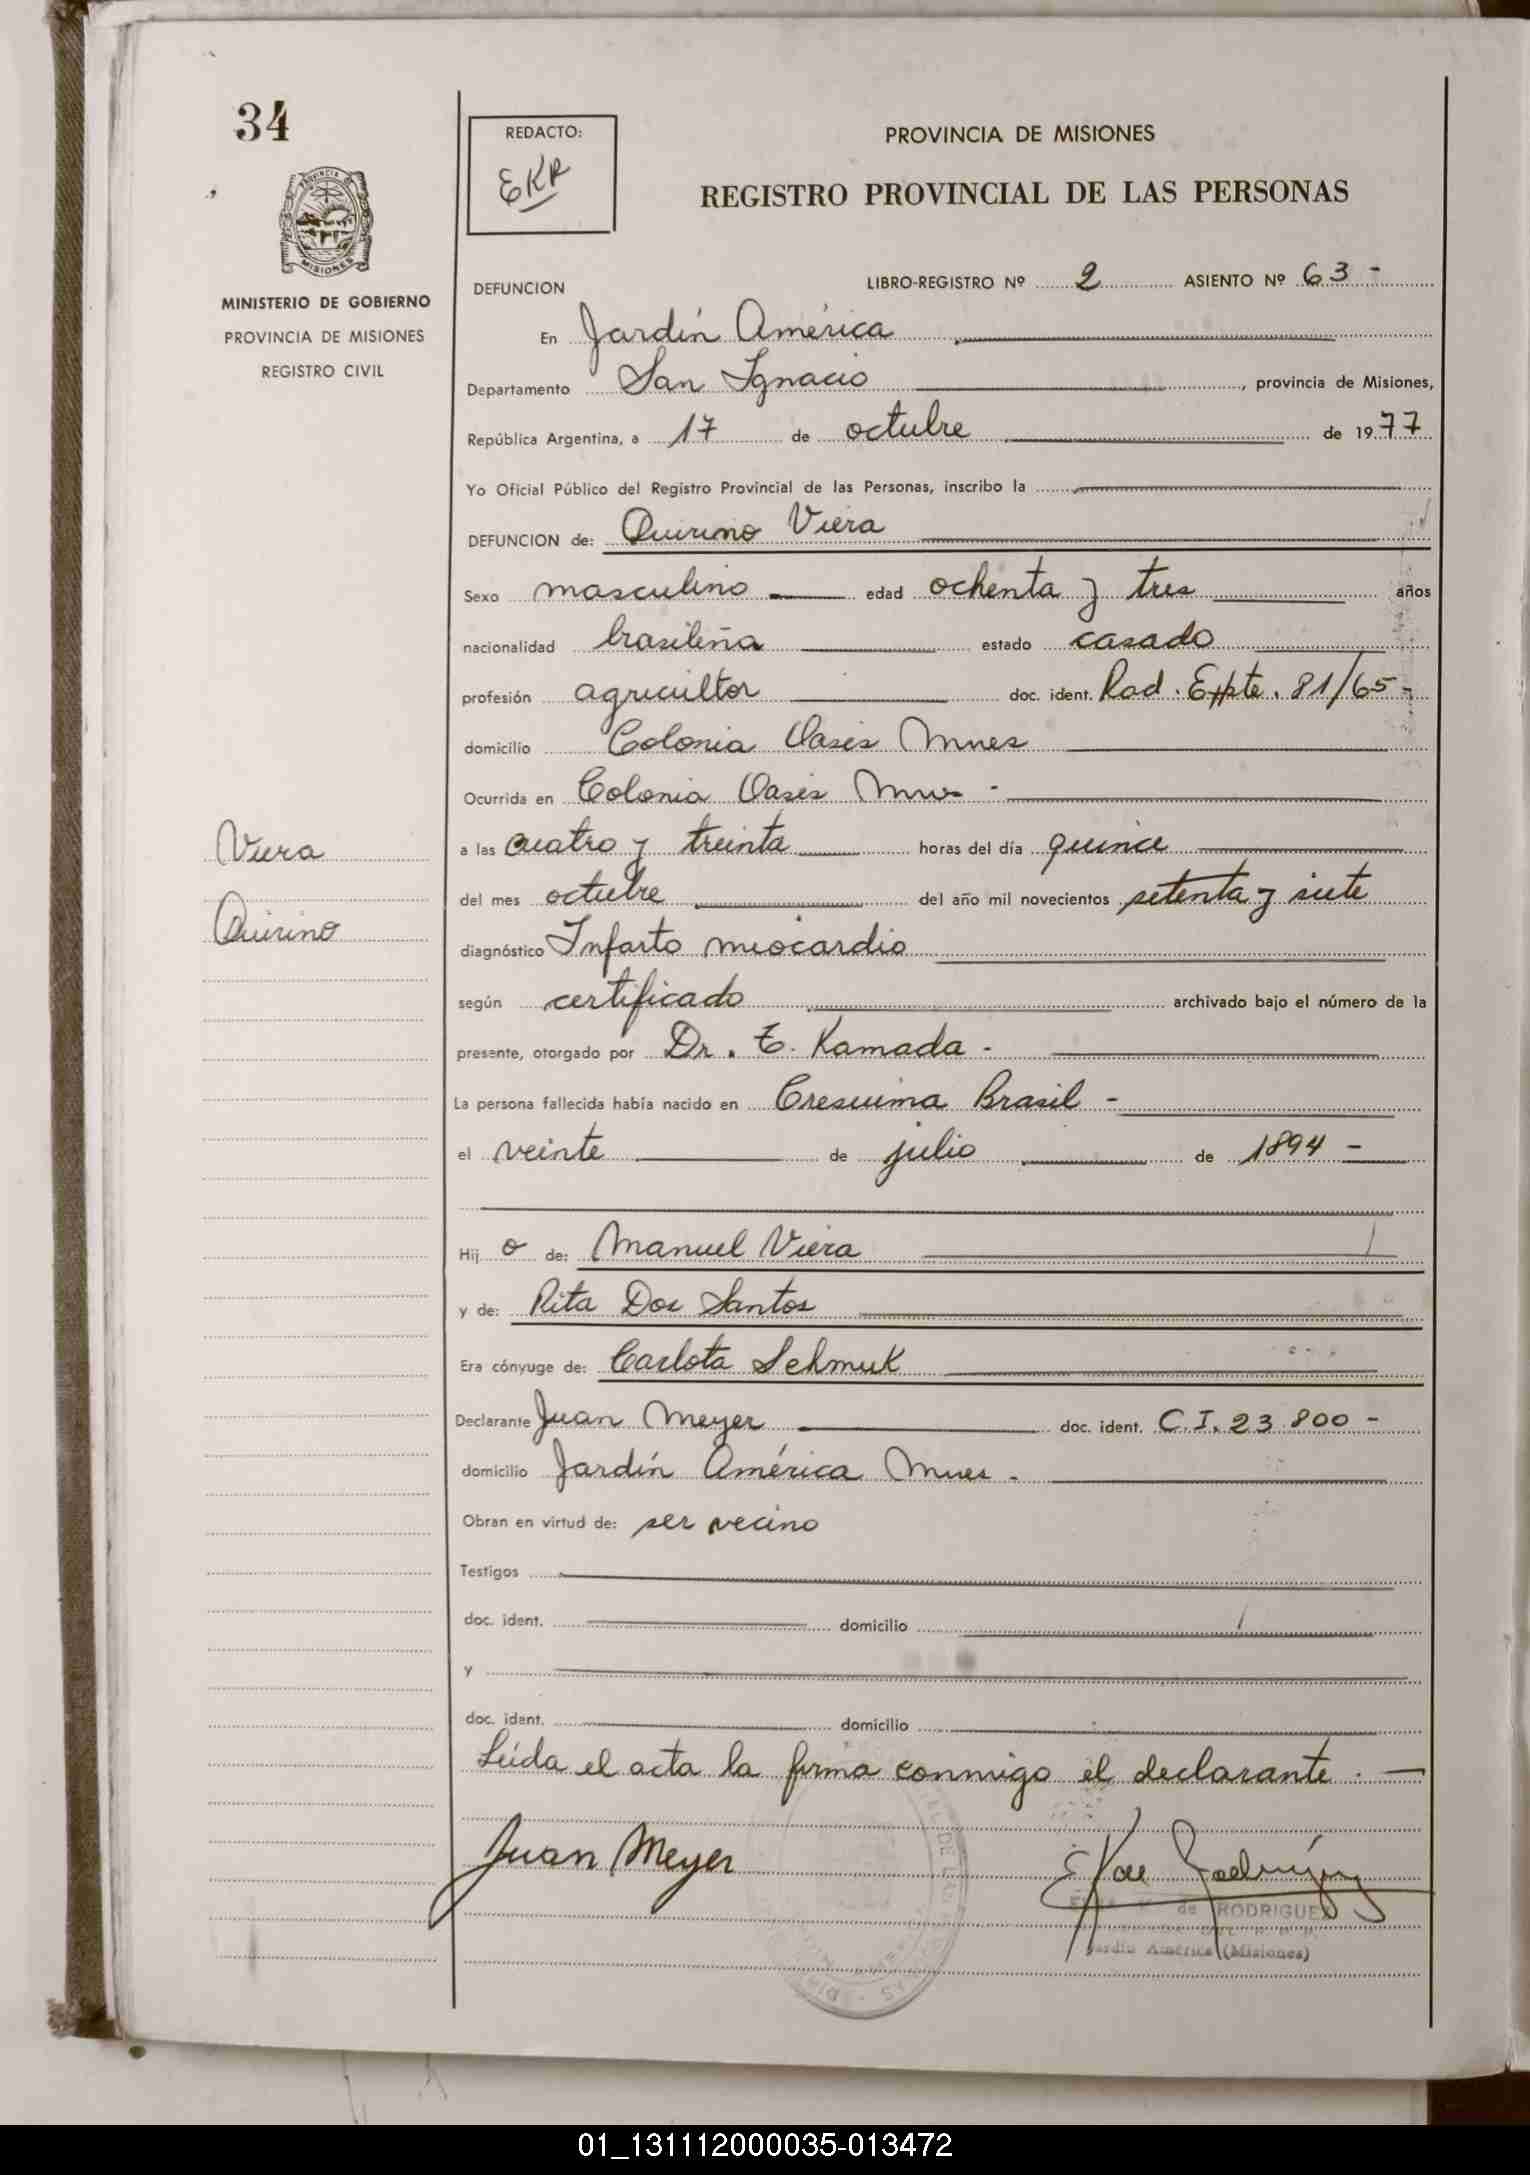 34
REDACTO:
EKR
PROVINCIA DE MISIONES
REGISTRO PROVINCIAL DE LAS PERSONAS
PROVINCIA DE
MISIONES
MINISTERIO DE GOBIERNO
PROVINCIA DE MISIONES
REGISTRO CIVIL
DEFUNCION LIBRO-REGISTRO Nº 2 ASIENTO Nº 63 -
En Jardín América
Departamento San Ignacio, provincia de Misiones,
República Argentina, a 17 de octubre de 1977
Yo Oficial Público del Registro Provincial de las Personas, inscribo la
DEFUNCION de: Quirino Viera
Sexo masculino edad ochenta y tres años
nacionalidad brasileña estado casado
profesión agricultor doc. ident. Rad. Expte. 81/65 -
domicilio Colonia Oasis Mnes
Ocurrida en Colonia Oasis Mnes -
Viera
a las cuatro y treinta horas del día quince
del mes octubre del año mil novecientos setenta y siete
Quirino
diagnóstico Infarto miocardio
según certificado archivado bajo el número de la
presente, otorgado por Dr. T. Kamada -
La persona fallecida había nacido en Cresuima Brasil -
el veinte de julio de 1894 -
Hij o de: Manuel Viera
y de: Rita Dos Santos
Era cónyuge de: Carlota Schmuk
Declarante Juan Meyer doc. ident. C.I. 23.800 -
domicilio Jardín América Mnes -
Obran en virtud de: ser vecino
Testigos
doc. ident. domicilio
y
doc. ident. domicilio
Leída el acta la firma conmigo el declarante. -
Juan Meyer
de RODRIGUEZ
Jardín América (Misiones)
01_131112000035-013472